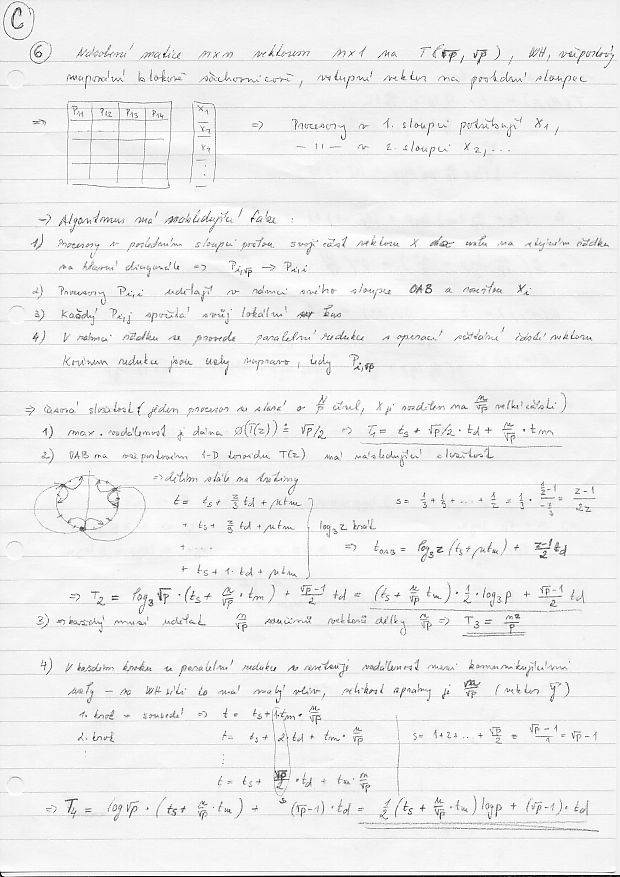 C
6 Násobení matice n×n vektorem n×1 na T(√p, √p), WH, všeportový
mapování blokově šachovnicové, vstupní vektor na poslední sloupec
⇒ P11 P12 P13 P14 X1 ⇒ Procesory v 1. sloupci potřebují X1,
— 11 — v 2. sloupci X2, ...
→ Algoritmus má následující fáze :
1) Procesory v posledním sloupci pošlou svoji část vektoru X uzlu na stejném řádku
na hlavní diagonále ⇒ Pi,√p → Pi,i
2) Procesory Pi,i udělají v rámci svého sloupce OAB a rozešlou Xi
3) Každý Pi,j spočítá svůj lokální čas
4) V rámci řádku se provede paralelní redukce s operací sčítání částí vektoru
Kořenem redukce jsou uzly napravo, tedy Pi,√p
⇒ časová složitost (jeden procesor se stará o N/p čísel, X je rozdělen na n/√p velké části)
1) max. vzdálenost je dána Ø(T(z)) ≐ √p/2 ⇒ T1 = ts + √p/2 · td + n/√p · tm
2) OAB na všeportovém 1-D toroidu T(z) má následující složitost
⇒ dělím stále na třetiny
t = ts + z/3 td + μtm
+ ts + z/9 td + μtm
+ ....
+ ts + 1·td + μtm
log3 z kroků
s = 1/3 + 1/9 + ... + 1/z = z-1/2z
⇒ tOAB = log3 z (ts + μtm) + z-1/2 td
⇒ T2 = log3 √p · (ts + n/√p · tm) + √p-1/2 td = (ts + n/√p tm) · 1/2 · log3 p + √p-1/2 td
3) ⇒ každý musí udělat n/√p součinů vektorů délky n/√p ⇒ T3 = n2/p
4) V každém kroku se paralelní redukce se zvětšuje vzdálenost mezi komunikujícími
uzly – na WH síti to má malý vliv, velikost zprávy je n/√p (vektor y)
1. krok – sousedé ⇒ t = ts + 1·tm · n/√p
2. krok t = ts + 2·td + tm · n/√p
⋮
t = ts + √p/2 · td + tm · n/√p
s
s = 1+2+ ... + √p/2 = √p-1/1 = √p-1
⇒ T4 = log √p · (ts + n/√p · tm) + (√p-1) · td = 1/2 (ts + n/√p · tm) log p + (√p-1) · td